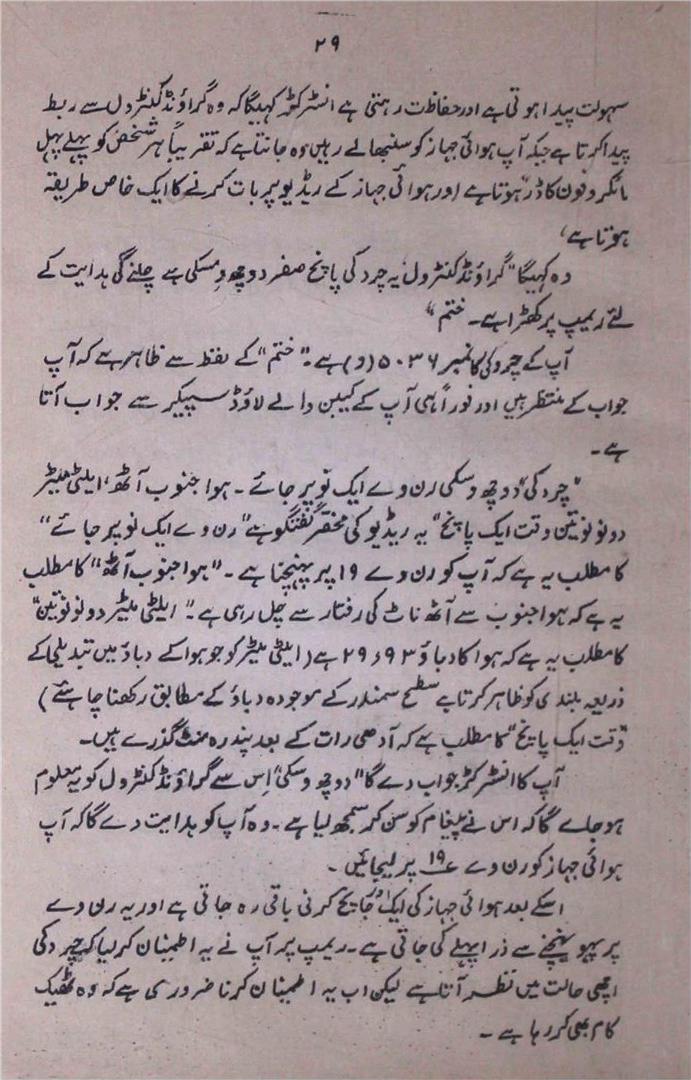 ۲۹
سہولت پیدا ہوتی ہے اور حفاظت رہتی ہے انسٹرکٹر کہیگا کہ وہ گراؤنڈ کنٹرول سے ربط
پیدا کرتا ہے جبکہ آپ ہوائی جہاز کو سنبھالے رہیں وہ جانتا ہے کہ تقریباً ہر شخص کو پہلے پہل
مائکروفون کا ڈر ہوتا ہے اور ہوائی جہاز کے ریڈیو پر بات کرنے کا ایک خاص طریقہ
ہوتا ہے،
وہ کہیگا "گراؤنڈ کنٹرول یہ چروکی پانچ صفر دو چھ وسکی ہے چلنے کی ہدایت کے
لئے ریمپ پر کھڑا ہے۔ ختم"
آپ کے چیروکی کا نمبر ۵۰۳۶ (و) ہے۔ "ختم" کے لفظ سے ظاہر ہے کہ آپ
جواب کے منتظر ہیں اور فوراً ہی آپ کے کیبن والے لاؤڈ سپیکر سے جواب آتا
ہے۔
"چروکی" دو چھ وسکی رن وے ایک نو پر جائے۔ ہوا جنوب آٹھ، ایلٹی میٹر
دو نو نو تین وقت ایک پانچ" یہ ریڈیو کی مختصر گفتگو ہے "رن وے ایک نو پر جائے"
کا مطلب یہ ہے کہ آپ کو رن وے ۱۹ پر پہنچنا ہے۔ "ہوا جنوب آٹھ" کا مطلب
یہ ہے کہ ہوا جنوب سے آٹھ ناٹ کی رفتار سے چل رہی ہے۔ "ایلٹی میٹر دو نو نو تین"
کا مطلب یہ ہے کہ ہوا کا دباؤ ۲۹٫۹۳ ہے (ایلٹی میٹر کو جو ہوا کے دباؤ میں تبدیلی کے
ذریعہ بلندی کو ظاہر کرتا ہے سطح سمندر کے موجودہ دباؤ کے مطابق رکھنا چاہئے)
"وقت ایک پانچ" کا مطلب ہے کہ آدھی رات کے بعد پندرہ منٹ گذرے ہیں۔
آپ کا انسٹرکٹر جواب دے گا "دو چھ وسکی" اِس سے گراؤنڈ کنٹرول کو یہ معلوم
ہو جاے گا کہ اس نے پیغام کو سن کر سمجھ لیا ہے۔ وہ آپ کو ہدایت دے گا کہ آپ
ہوائی جہاز کو رن وے ۱۹ پر لیجائیں۔
اسکے بعد ہوائی جہاز کی ایک اور جانچ کرنی باقی رہ جاتی ہے اور یہ رن وے
پر پہونچنے سے ذرا پہلے کی جاتی ہے۔ ریمپ پر آپ نے یہ اطمینان کر لیا کہ چیروکی
اچھی حالت میں نظر آتا ہے لیکن اب یہ اطمینان کرنا ضروری ہے کہ وہ ٹھیک
کام بھی کر رہا ہے۔